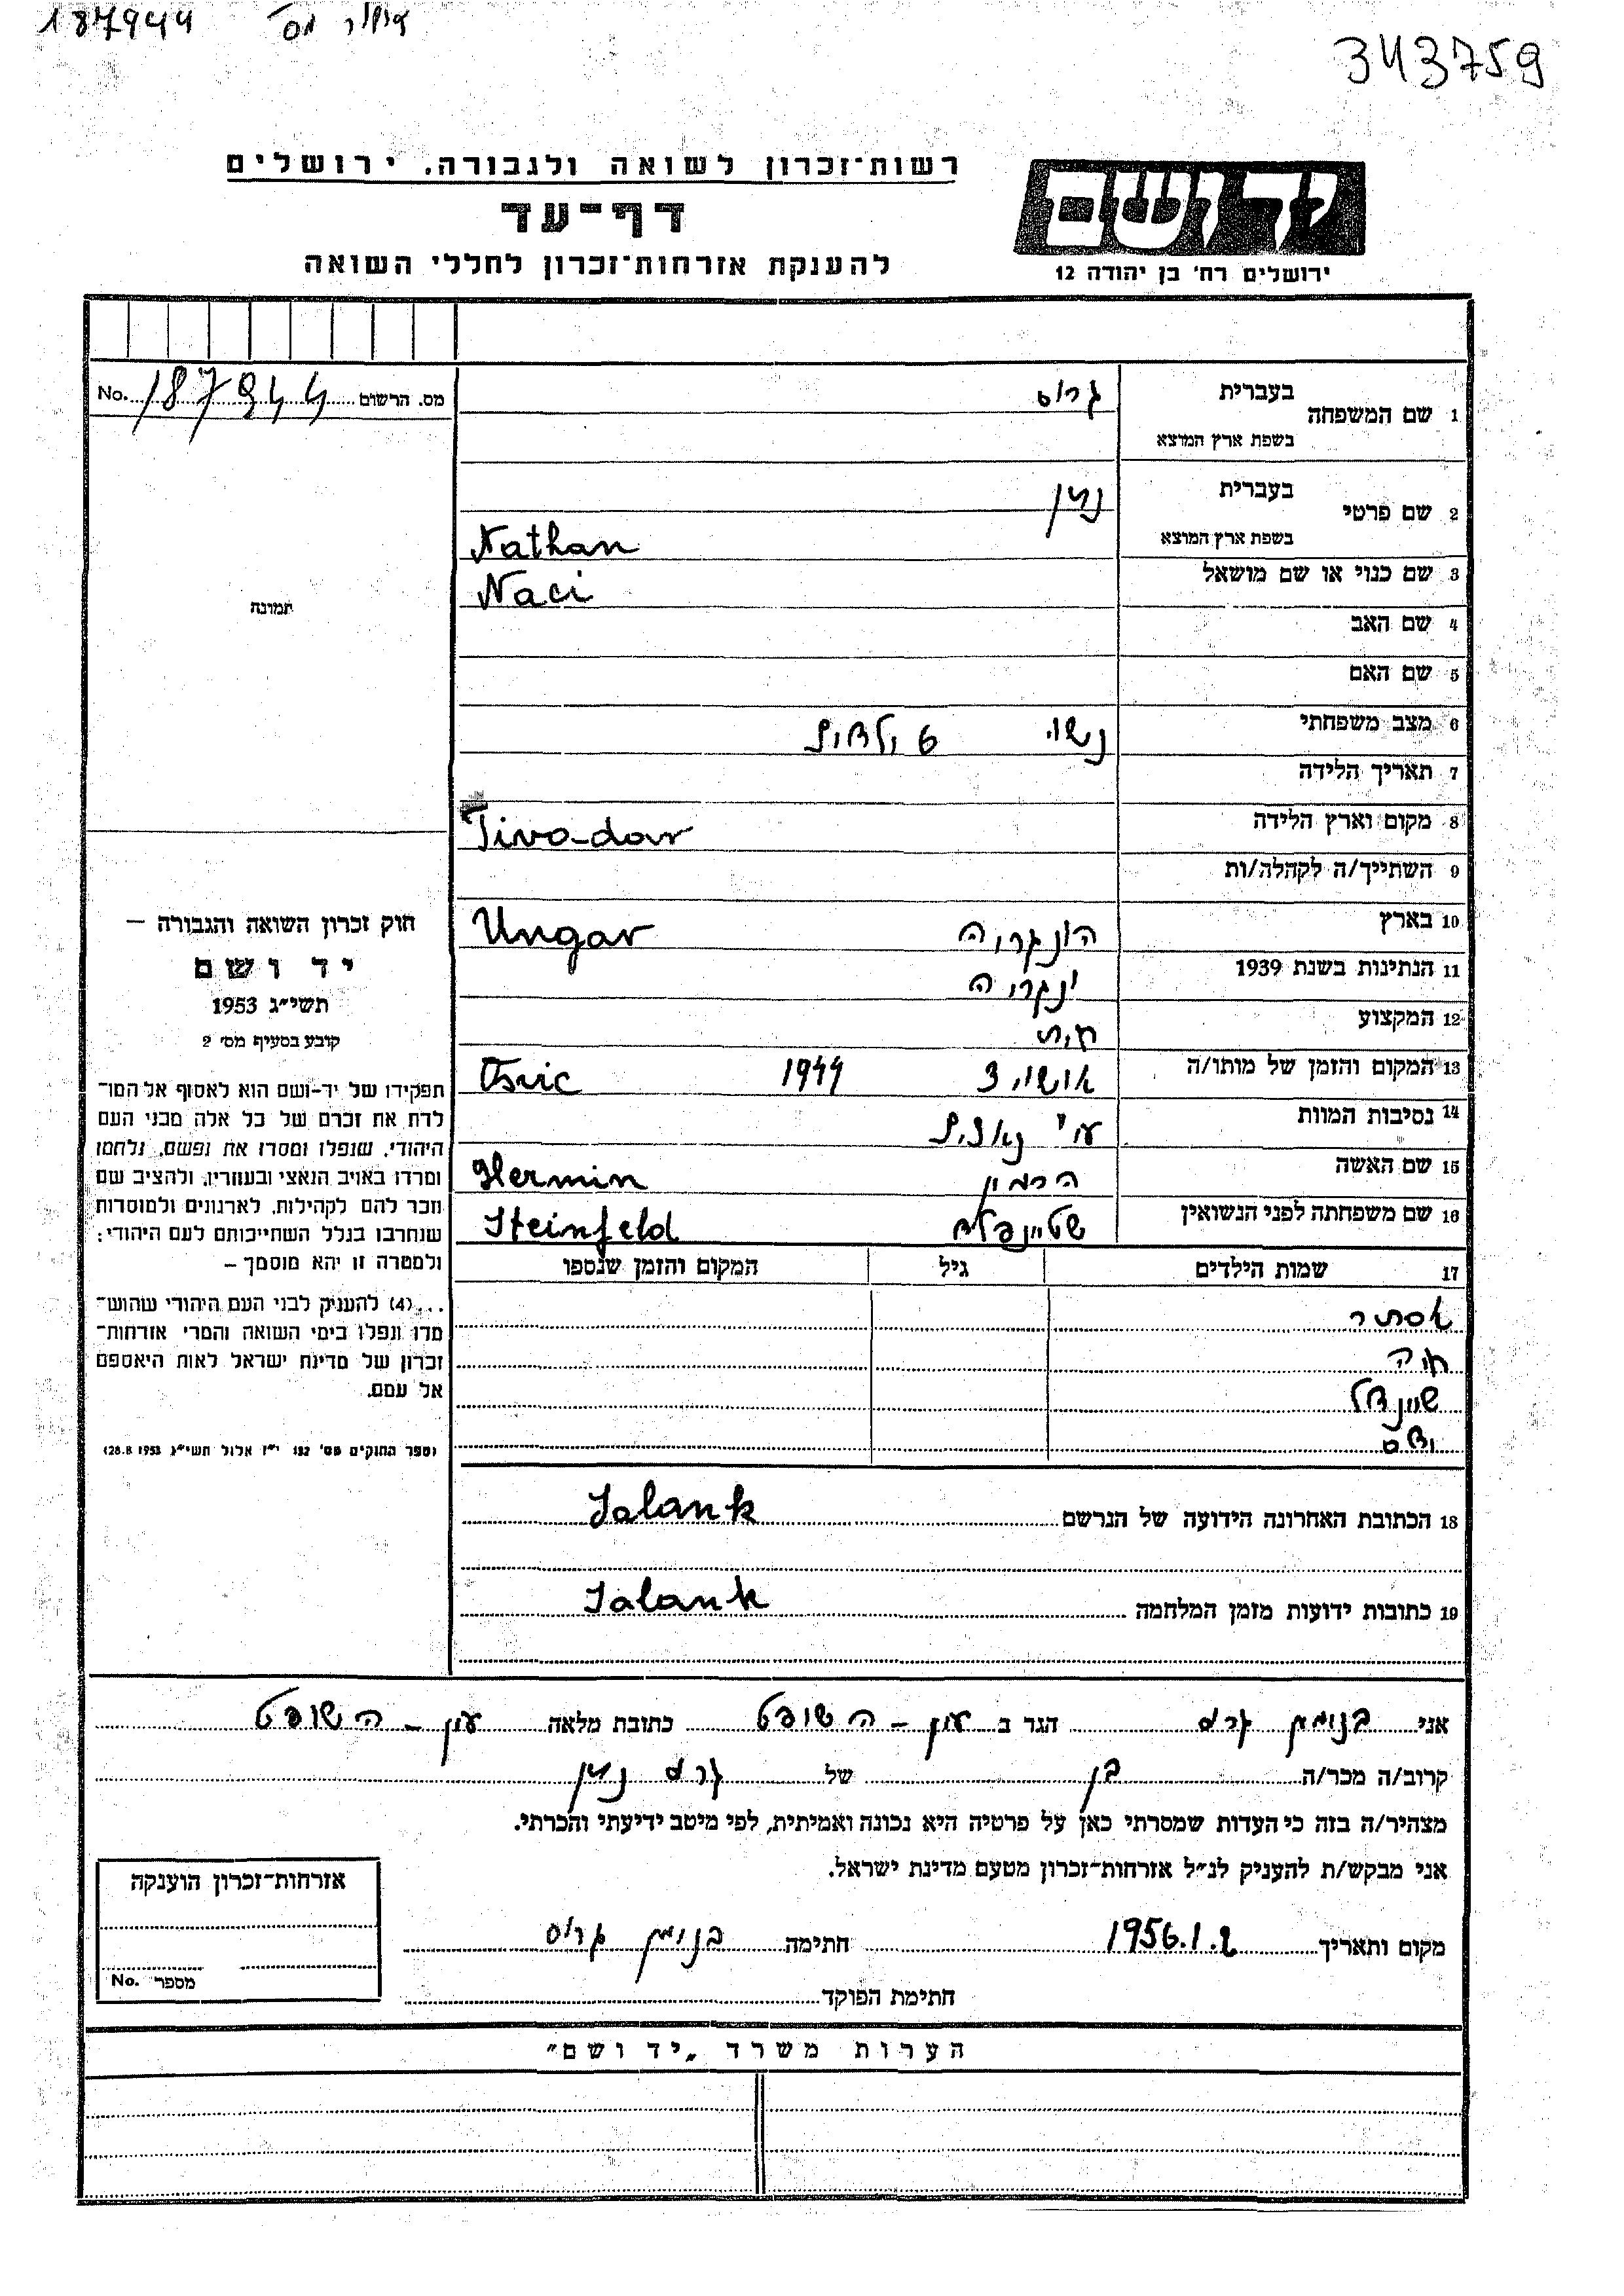 187944 מס'
343759
רשות־זכרון לשואה ולגבורה. ירושלים
דף־עד
להענקת אזרחות־זכרון לחללי השואה
יד ושם
ירושלים רח' בן יהודה 12
מס. הרשום 187944 No.
תמונה
חוק זכרון השואה והגבורה —
יד ושם
תשי״ג 1953
קובע בסעיף מס׳ 2
תפקידו של יד-ושם הוא לאסוף אל המו־
לדת את זכרם של כל אלה מבני העם
היהודי, שנפלו ומסרו את נפשם, נלחמו
ומרדו באויב הנאצי ובעוזריו, ולהציב שם
וזכר להם לקהילות, לארגונים ולמוסדות
שנחרבו בגלל השתייכותם לעם היהודי;
ולמטרה זו יהא מוסמך —
...(4) להעניק לבני העם היהודי שהוש־
מדו ונפלו בימי השואה והמרי אזרחות־
זכרון של מדינת ישראל לאות היאספם
אל עמם.
(ספר החוקים מס' 132 י״ז אלול תשי״ג 28.8.1953)
1 שם המשפחה בעברית גרוס
בשפת ארץ המוצא
2 שם פרטי בעברית נתן
בשפת ארץ המוצא Nathan
3 שם כנוי או שם מושאל Naci
4 שם האב
5 שם האם
6 מצב משפחתי נשוי 6 ילדים
7 תאריך הלידה
8 מקום וארץ הלידה Tivo-dar
9 השתייך/ה לקהלה/ות
10 בארץ הונגריה Ungar
11 הנתינות בשנת 1939 ינגריה
12 המקצוע
13 המקום והזמן של מותו/ה אושויצ 1944 Osvic
14 נסיבות המוות ע״י נאצים
15 שם האשה הרמין Hermin
16 שם משפחתה לפני הנשואין שטיינפלד Steinfeld
17 שמות הילדים גיל המקום והזמן שנספו
אסתר
חוה
שיינדל
18 הכתובת האחרונה הידועה של הנרשם Salank
19 כתובות ידועות מזמן המלחמה Salank
אני בנימין גרוס הגר ב עין - השופט כתובת מלאה עין - השופט
קרוב/ה מכר/ה בן של גרוס נתן
מצהיר/ה בזה כי העדות שמסרתי כאן על פרטיה היא נכונה ואמיתית, לפי מיטב ידיעתי והכרתי.
אני מבקש/ת להעניק לנ״ל אזרחות־זכרון מטעם מדינת ישראל.
מקום ותאריך 1956.1.2 חתימה בנימין גרוס
חתימת הפוקד
אזרחות־זכרון הוענקה
מספר No.
הערות משרד „יד ושם״